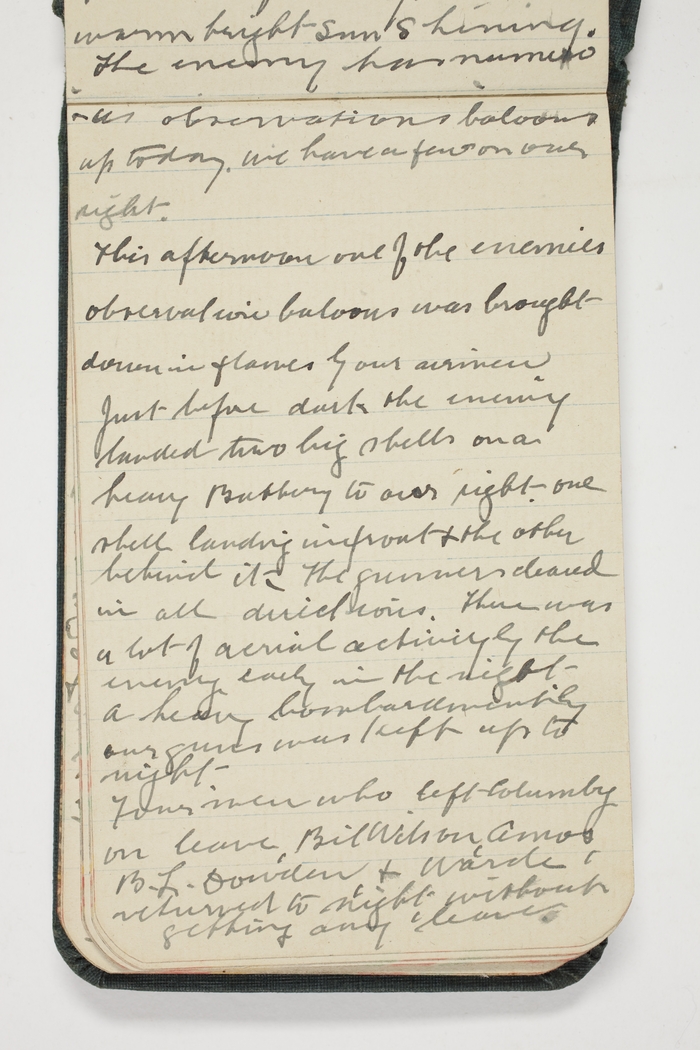 warm bright Sun Shining.
The enemy has numero
-us observations baloons
up today. we have a few on our
right.
This afternoon one of the enemies
observation baloons was brought
down in flames by our airmen
Just before dark the enemy
landed two big shells on a
heavy Battery to our right. one
shell landing infront & the other
behind it. The gunners cleared
in all directions. There was
a lot of aerial activity by the
enemy early in the night
A heavy bombardment by
our guns was kept up to
night
Four men who left Columby
on leave, Bil Wilson, Amos
B.L. Dowden & Warde
returned to night without
getting any leave